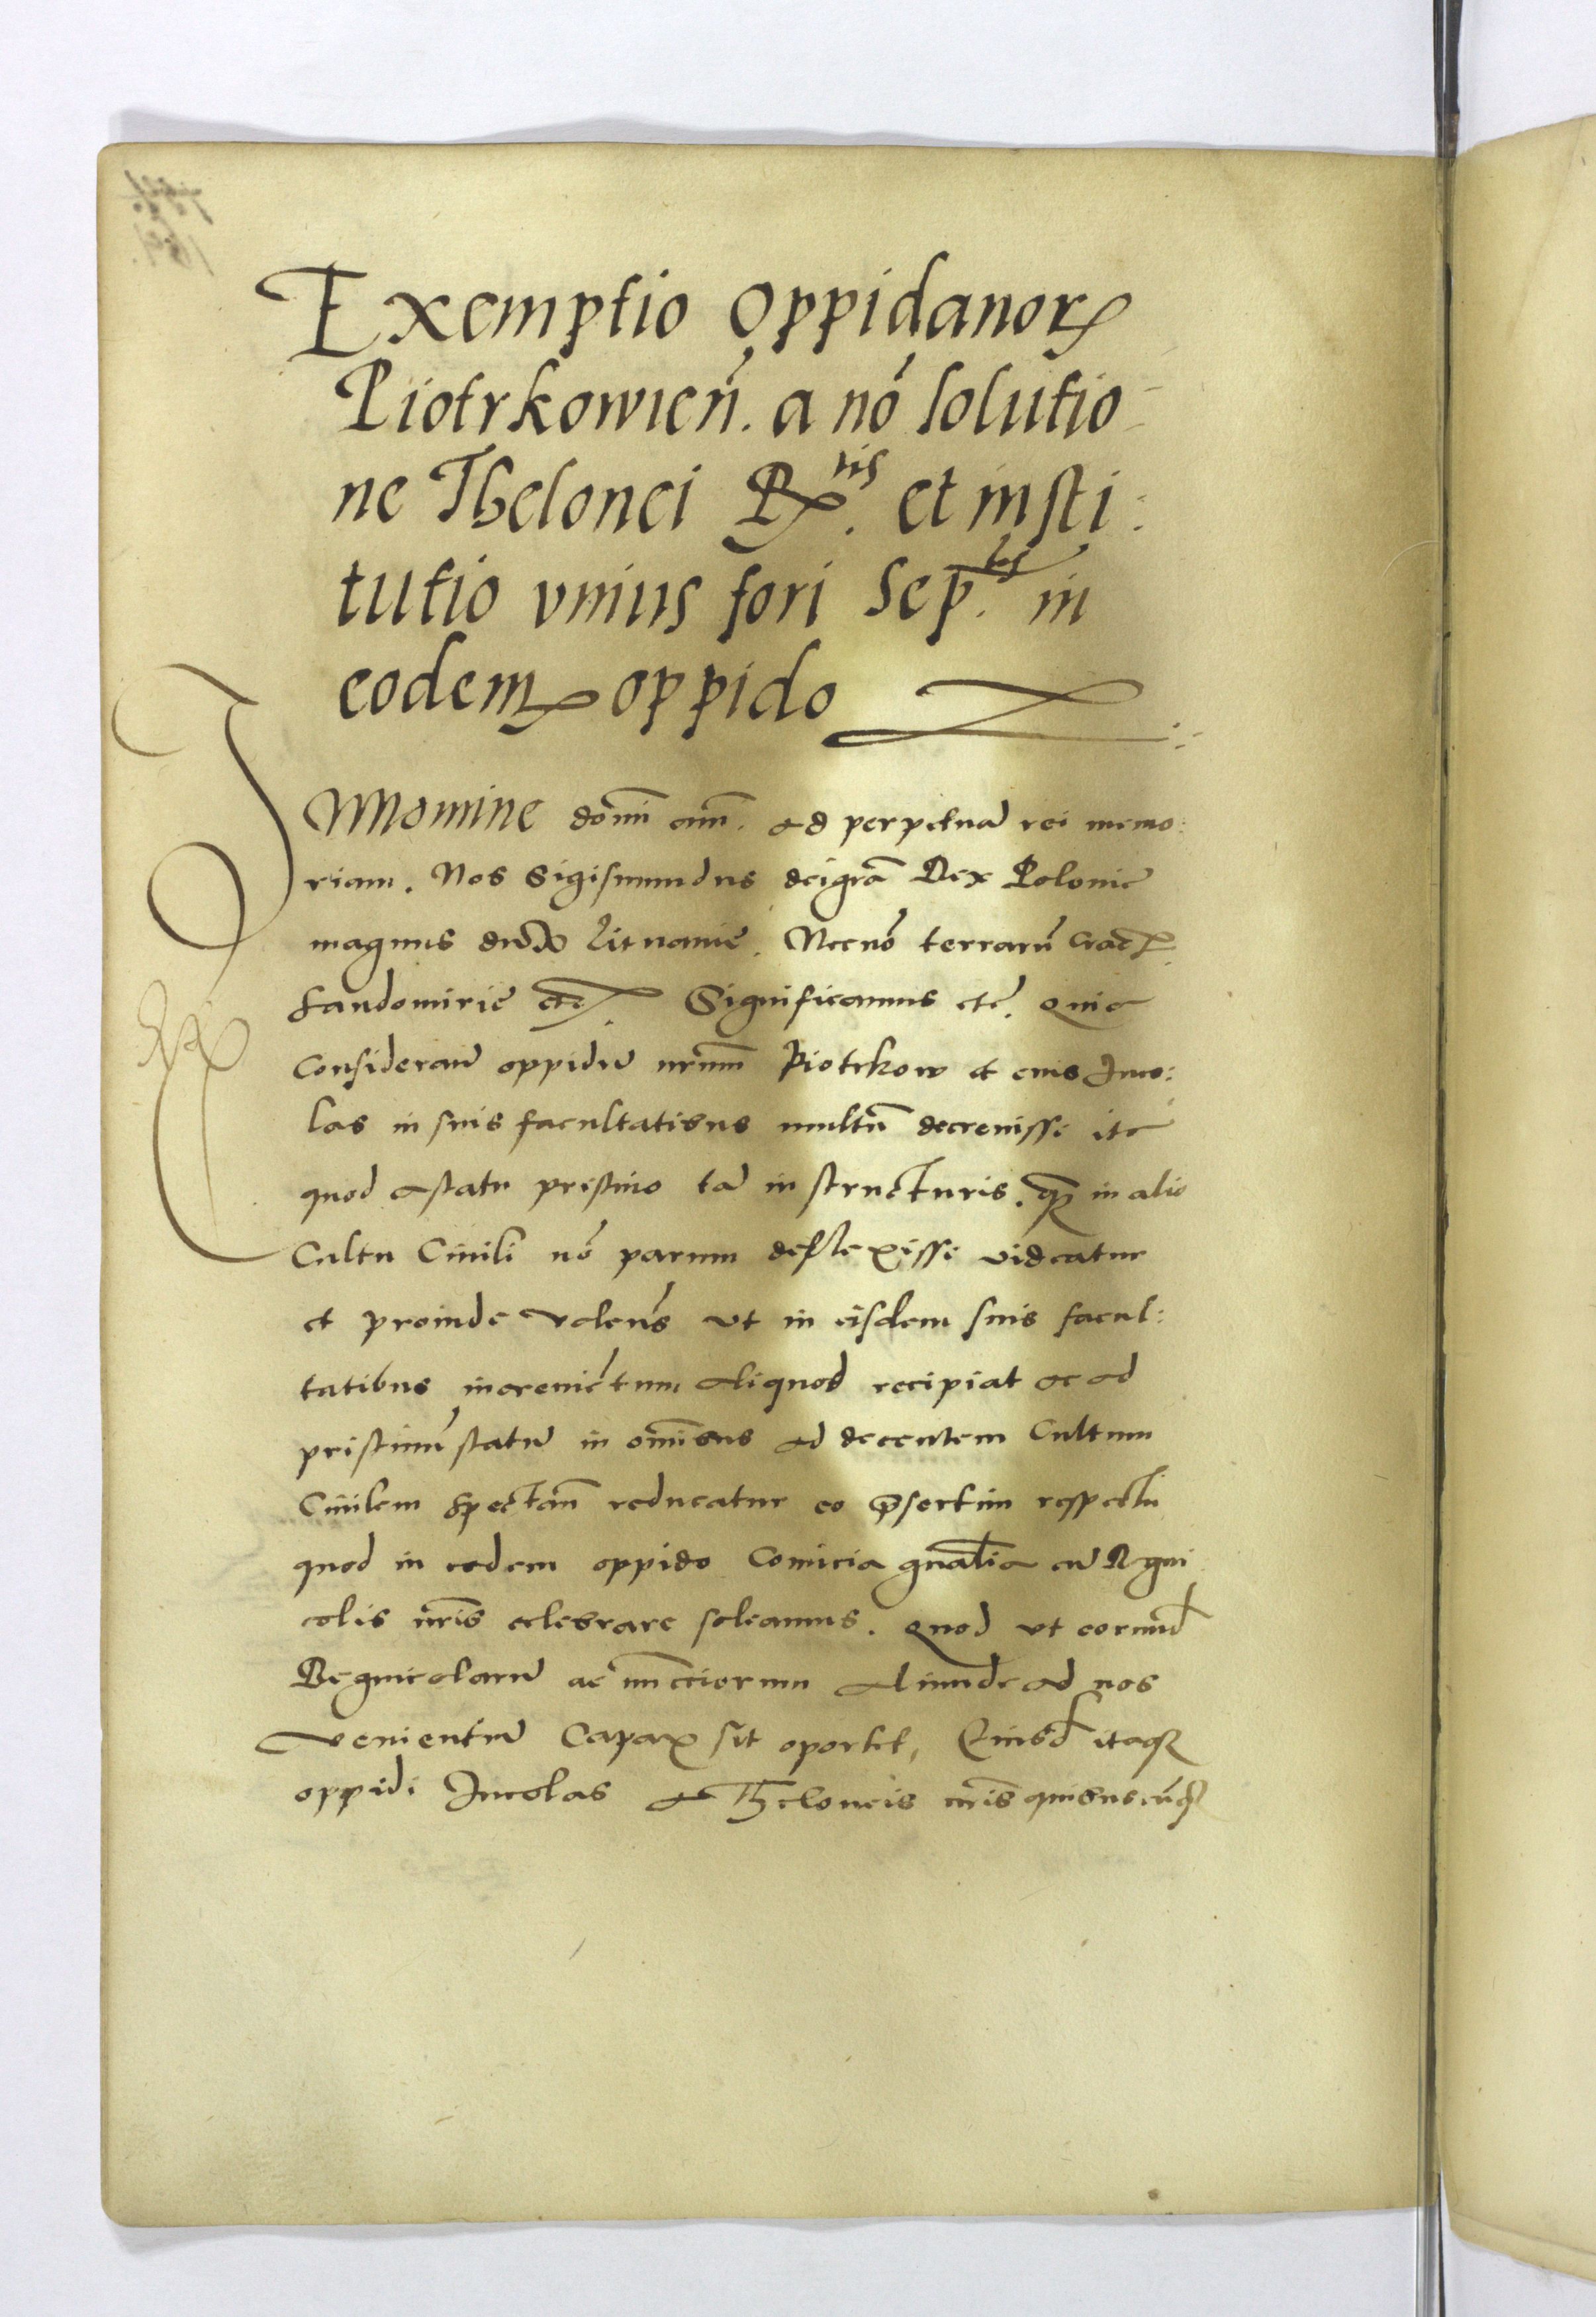 Exemptio Oppidanorꝝ
Piotrkowień. a nō solutio-
ne Thelonei R<sup>lis</sup>. et insti:
tutio vnius fori Sep<sup>lis</sup>. in
eodem oppido
In Nomine domī amē. ad perpetuā rei memo:
riam. Nos Sigismundus dei grā Rex Polonie
magnus dux Lituanie. Necnō terrarū Crac.
Sandomirie etc. Significamus etc. Quia
Considerātes oppidū nrūm Piotrkow et eius Inco:
las in suis facultatibus multū decreuisse ita
quod a statu pristino tā in structuris. qꝫ in alio
Cultu Ciuili nō parum deflexisse videatur
et proinde volentes vt in eisdem suis facul:
tatibus incremētum aliquod recipiat ac ad
pristinū statū in omībus ad decentem Cultum
Ciuilem spectāñ reducatur eo p̄sertim respectu
quod in eodem oppido Comicia gnālia cū Regni
colis nrīs celebrare soleamus. Quod vt eorund
Regnicolarū ac nūcciorum aliunde ad nos
venientiū Capax sit oportet, Eiusd itaqꝫ
oppidi Incolas a Theloneis nrīs quibuscūqꝫ